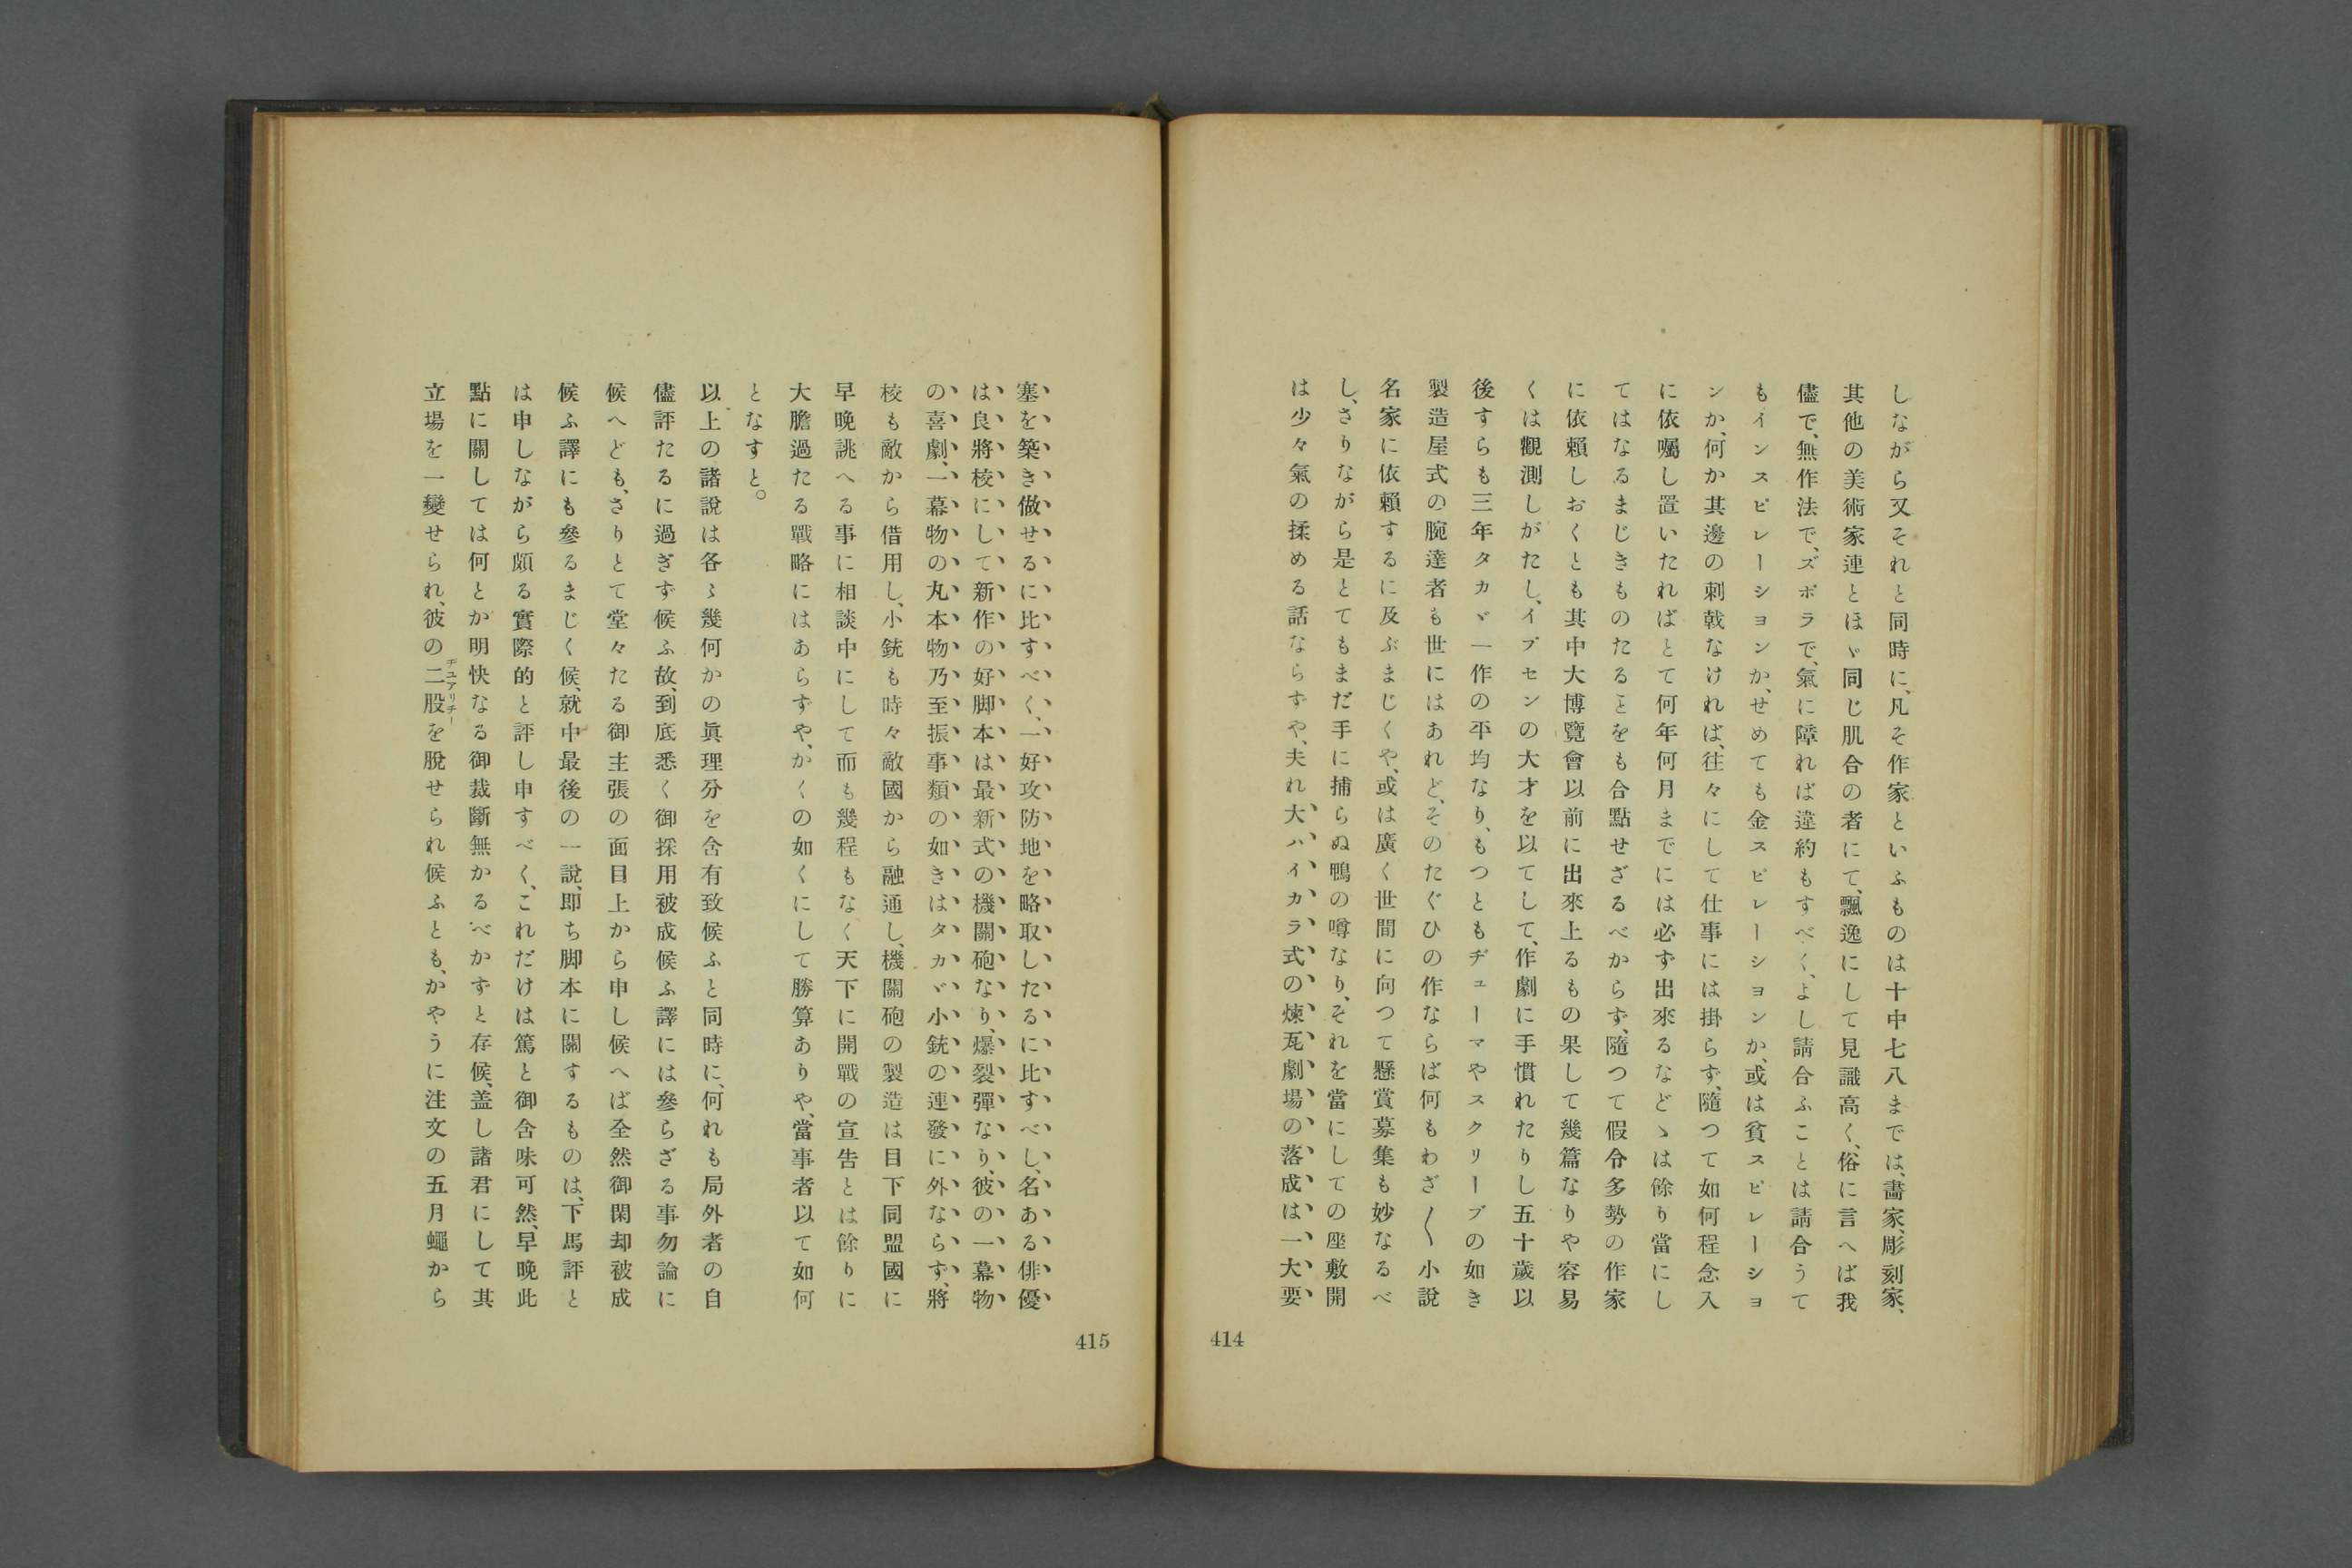 しながら又それと同時に、凡そ作家といふものは十中七八までは、畵家、彫刻家、
其他の美術家連とほゞ同じ肌合の者にて、飄逸にして見識高く、俗に言へば我
儘で、無作法で、ズボラで、氣に障れば違約もすべく、よし請合ふことは請合うて
もインスピレーションか、せめても金スピレーションか、或は貧スピレーショ
ンか、何か其邊の刺戟なければ、往々にして仕事には掛らず、隨つて如何程念入
に依囑し置いたればとて何年何月までには必ず出來るなどゝは餘り當にし
てはなるまじきものたることをも合點せざるべからず、隨つて假令多勢の作家
に依頼しおくとも其中大博覽會以前に出來上るもの果して幾篇なりや容易
くは觀測しがたし、イブセンの大才を以てして、作劇に手慣れたりし五十歲以
後すらも三年タカヾ一作の平均なり、もつともヂューマやスクリーブの如き
製造屋式の腕達者も世にはあれど、そのたぐひの作ならば何もわざ〱小說
名家に依賴するに及ぶまじくや、或は廣く世間に向つて懸賞募集も妙なるべ
し、さりながら是とてもまだ手に捕らぬ鴨の噂なり、それを當にしての座敷開
は少々氣の揉める話ならずや、夫れ大ハイカラ式の煉瓦劇場の落成は一大要
414
塞を築き做せるに比すべく、一好攻防地を略取したるに比すべし、名ある俳優
は良將校にして新作の好脚本は最新式の機關砲なり、爆裂彈なり、彼の一幕物
の喜劇、一幕物の丸本物乃至振事類の如きはタカヾ小銃の連發に外ならず、將
校も敵から借用し、小銃も時々敵國から融通し、機關砲の製造は目下同盟國に
早晩誂へる事に相談中にして而も幾程もなく天下に開戰の宣告とは餘りに
大膽過たる戰略にはあらずや、かくの如くにして勝算ありや、當事者以て如何
となすと。
以上の諸說は各〻幾何かの眞理分を含有致候ふと同時に、何れも局外者の自
儘評たるに過ぎず候ふ故、到底悉く御採用被成候ふ譯には參らざる事勿論に
候へども、さりとて堂々たる御主張の面目上から申し候へば全然御閑却被成
候ふ譯にも參るまじく候、就中最後の一說、即ち脚本に關するものは、下馬評と
は申しながら頗る實際的と評し申すべく、これだけは篤と御含味可然、早晩此
點に關しては何とか明快なる御裁斷無かるべかずと存候、盖し諸君にして其
立場を一變せられ、彼の二股ヂュアリチーを脫せられ候ふとも、かやうに注文の五月蠅から
415